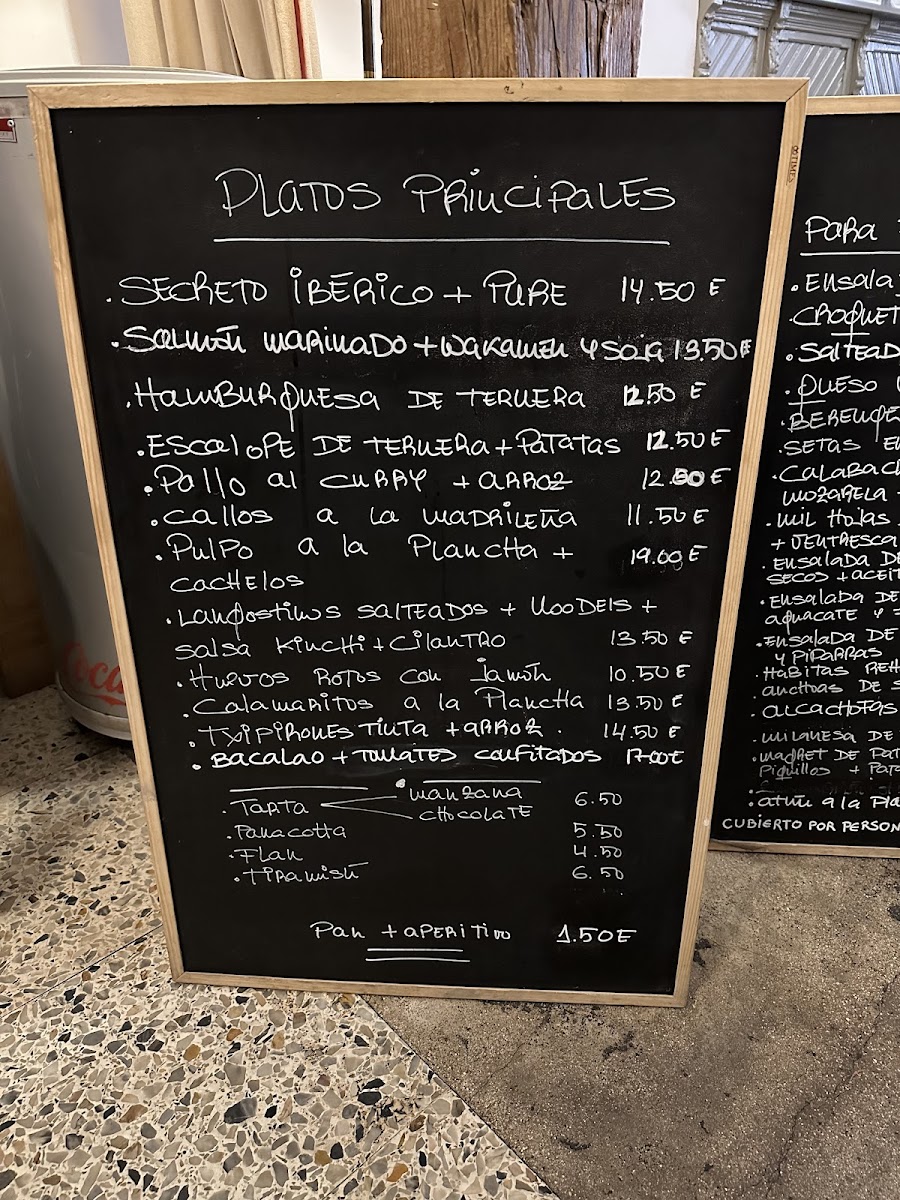 PLATOS PRINCIPALES
.SECRETO IBÉRICO + PURE 14.50 €
.SALMÓN MARINADO + WAKAMEN Y SOJA 13.50€
.HAMBURGUESA DE TERNERA 12.50 €
.ESCALOPE DE TERNERA + PATATAS 12.50 €
.Pollo al CURRY + ARROZ 12.50€
.Callos a la MADRILEÑA 11.50 €
.Pulpo a la Plancha + 19.00 €
CACHELOS
.Langostinos SALTEADOS + NOODELS +
salsa KINCHI + CILANTRO 13.50 €
.Huevos Rotos con Jamón 10.50 €
.Calamaritos a la Plancha 13.50 €
.TXIPIRONES TINTA + ARROZ. 14.50 €
.BACALAO + TOMATES CONFITADOS 17.00€
.TARTA manzana 6.50
chocolate
.Panacotta 5.50
.Flan 4.50
.TIRAMISÚ 6.50
Pan + APERITIVO 1.50€
PARA
.ENSALA
.CROQUET
.SALTEAD
.QUESO
.BERENJE
.SETAS
.CALABAC
MOZARELA +
.MIL HOJAS
+ VENTRESCA
.ENSALADA DE
SECOS + ACEIT
.ENSALADA DE
AGUACATE Y
.ENSALADA DE
Y PIPARRAS
.HABITAS REH
anchoas DE S
.ALCACHOFAS
.MILANESA DE
.MAGRET DE PAT
Piquillos + PATA
.ATÚN a la Pla
CUBIERTO POR PERSON
OOTIMES
Coca